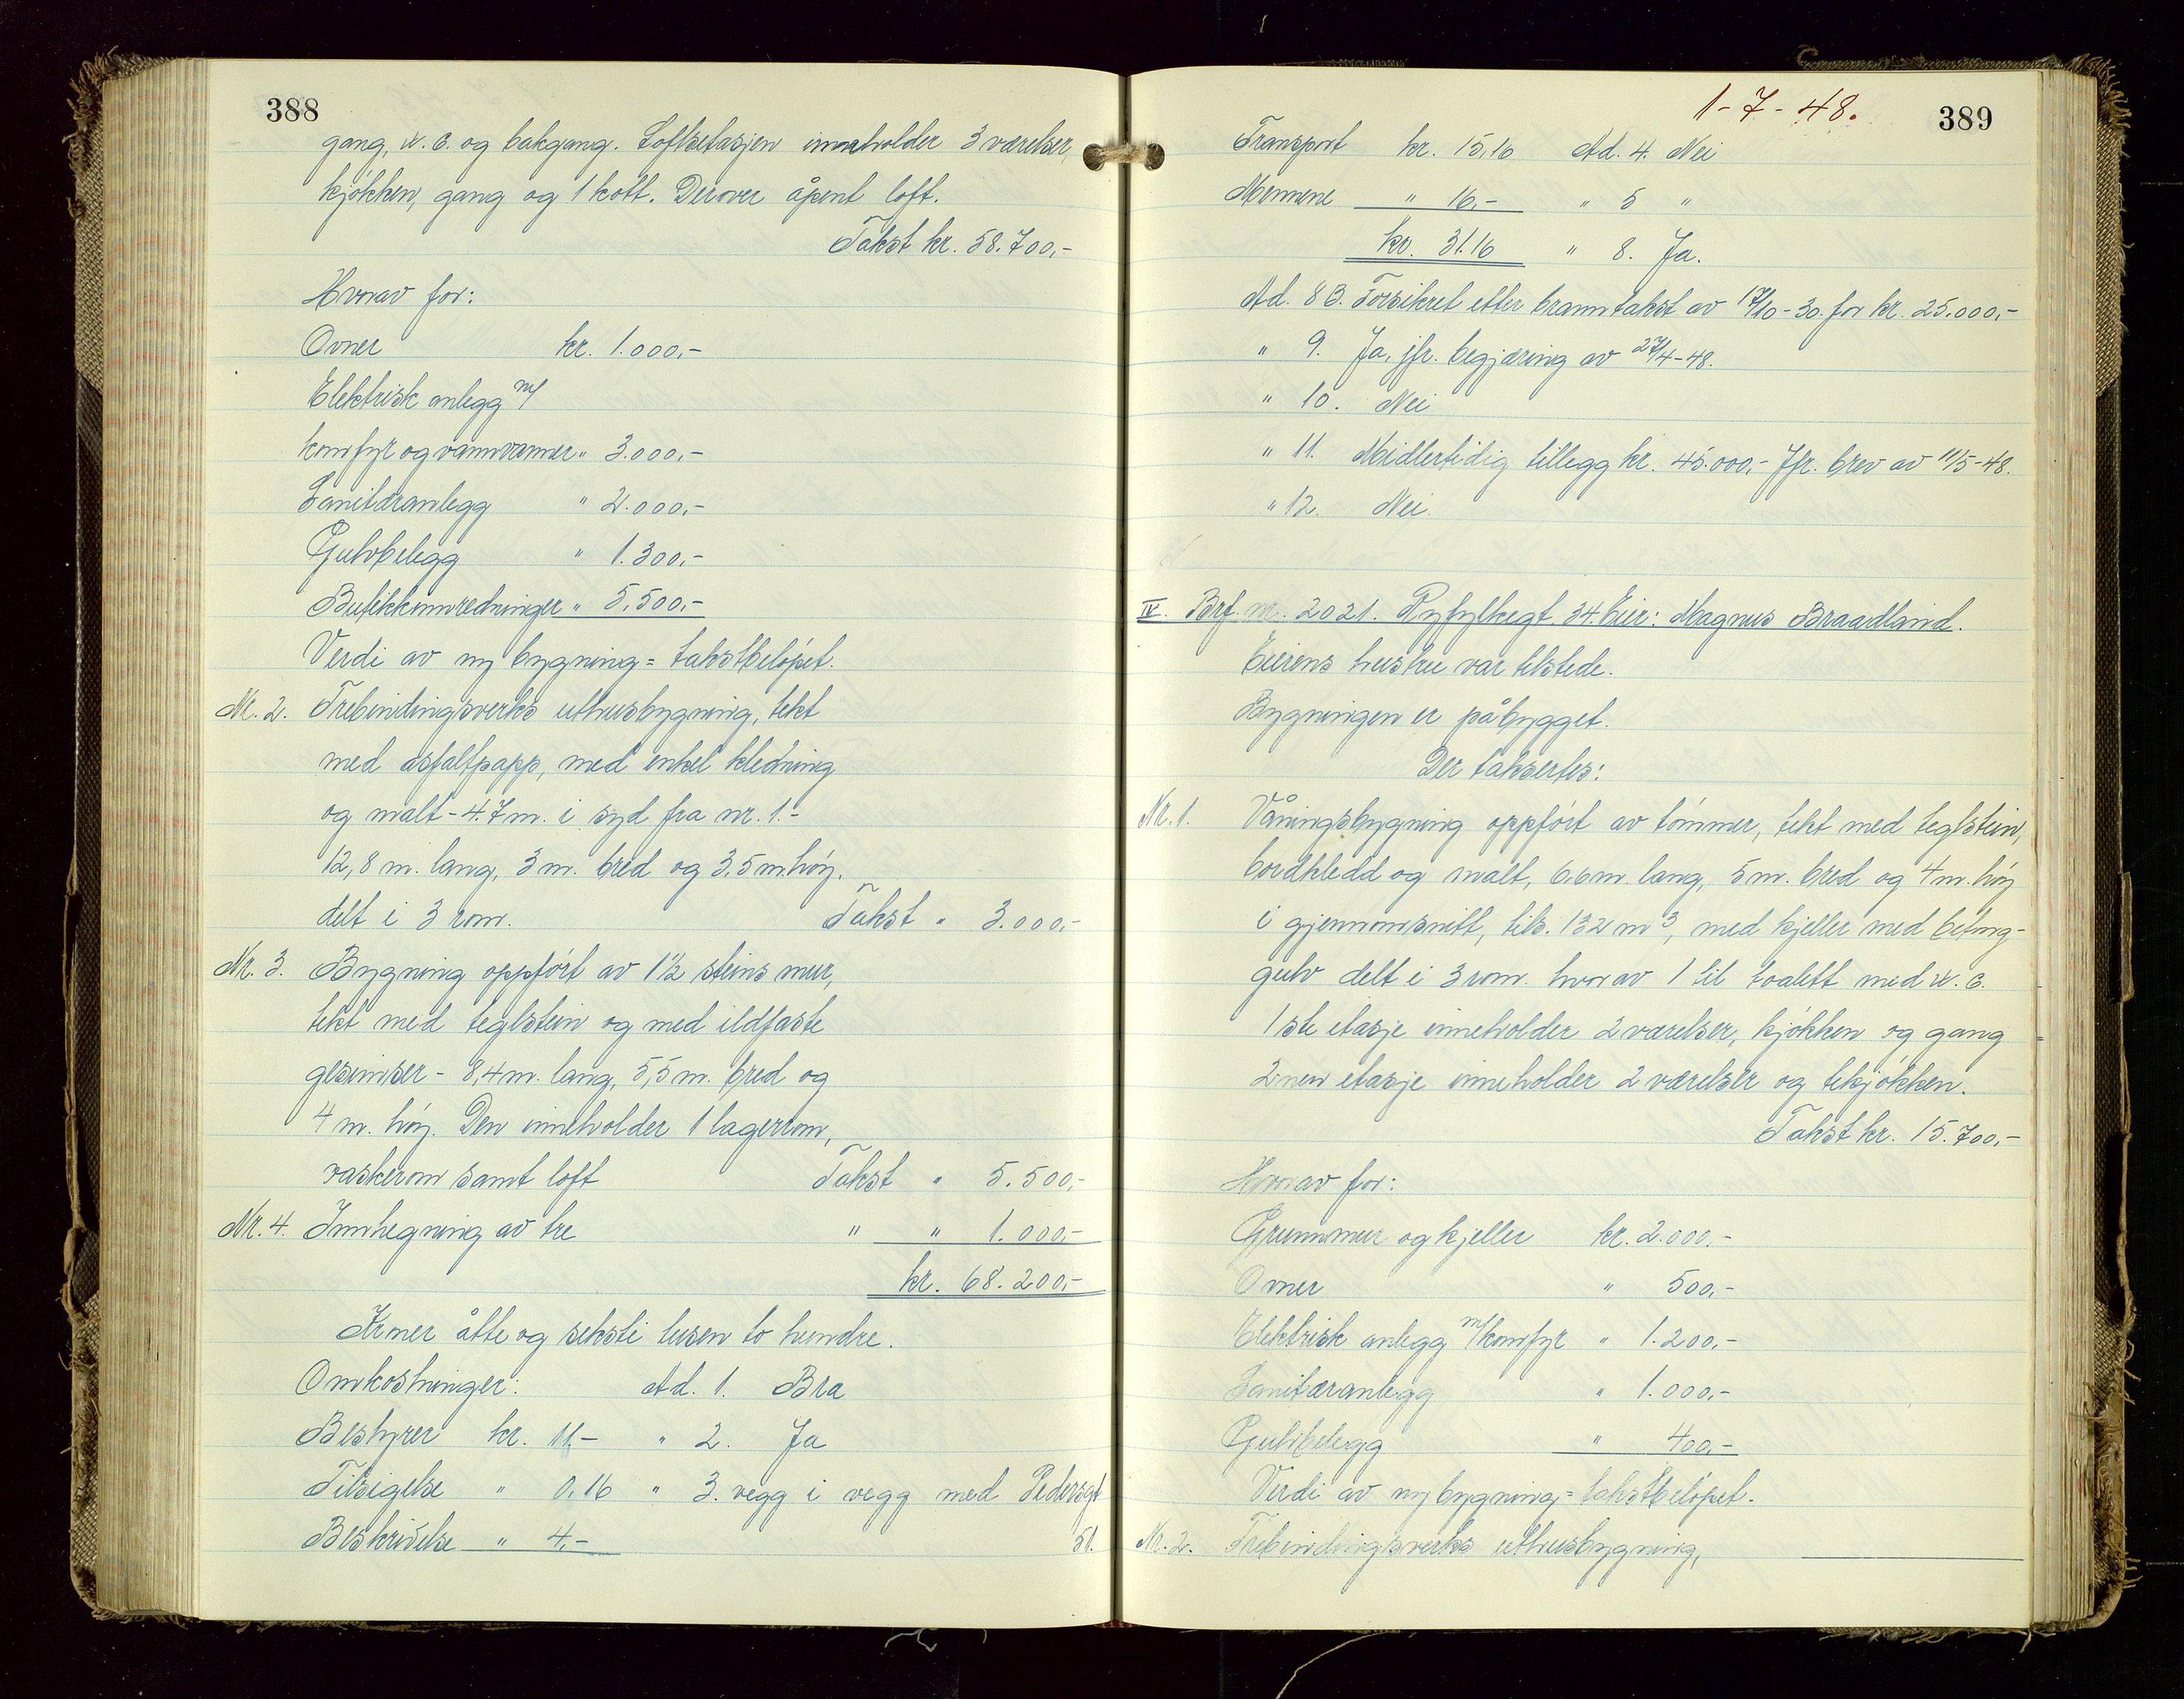 388
gang, w.c. og bakgang. Loftsetasjen inneholder 3 værelser,
kjøkken, gang og 1 kott. Derover åpent loft.
Takst kr. 58.700,-
Hvorav for:
Ovner kr. 1.000,-
Elektrisk anlegg m/
komfyr og vannvarmer " 3.000,-
Sanitæranlegg " 2.000,-
Gulvbelegg " 1.300,-
Butikkinnredninger " 5.500,-
Verdi av ny bygning = takstbeløpet.
Nr. 2. Trebindingsverks uthusbygning, tekt
med asfaltpapp, med enkel kledning
og malt - 4.7 m. i syd fra nr. 1. -
12,8 m. lang, 3 m. bred og 3,5 m. høy.
delt i 3 rom. Takst " 3.000,-
Nr. 3. Bygning oppført av 1½ steins mur,
tekt med teglstein og med ildfaste
gesimser - 8,4 m. lang, 5,5 m. bred og
4 m. høy. Den inneholder 1 lagerrom,
vaskerom samt loft Takst " 5.500,-
Nr. 4. Innhegning av tre " " 1.000,-
kr. 68.200,-
Kroner åtte og seksti tusen to hundre.
Omkostninger: Ad. 1. Bra
Bestyrer kr. 11,- " 2. Ja
Tilsigelse " 0.16 " 3. vegg i vegg med Pedersgt
Beskrivelse " 4,- 51.
1-7-48. 389
Transport kr. 15,16 Ad. 4. Nei
Mennene " 16,- " 5 "
kr. 31.16 " 8. Ja.
Ad. 8 B. Forsikret etter branntakst av 17/10-30. for kr. 25.000,-
" 9. Ja, jfr. begjæring av 27/4-48.
" 10. Nei
" 11. Midlertidig tillegg kr. 45.000,- Jfr. brev av 11/5-48.
" 12. Nei.
IV. Brf. nr. 2021. Ryfylkegt. 34. Eier: Magnus Braadland.
Eierens hustru var tilstede.
Bygningen er påbygget.
Der taksertes:
Nr. 1. Våningsbygning oppført av tømmer, tekt med teglstein,
bordkledd og malt, 6,6 m. lang, 5 m. bred og 4 m. høy
i gjennomsnitt, tils. 132 m³, med kjeller med betong-
gulv delt i 3 rom. hvorav 1 til toalett med w.c.
1ste etasje inneholder 2 værelser, kjøkken og gang
2nen etasje inneholder 2 værelser og tekjøkken.
Takst kr. 15.700,-
Hvorav for:
Grunnmur og kjeller kr. 2.000,-
Ovner " 500,-
Elektrisk anlegg m/komfyr " 1.200,-
Sanitæranlegg " 1.000,-
Gulvbelegg " 400,-
Verdi av ny bygning = takstbeløpet.
Nr. 2. Trebindingsverks uthusbygning,